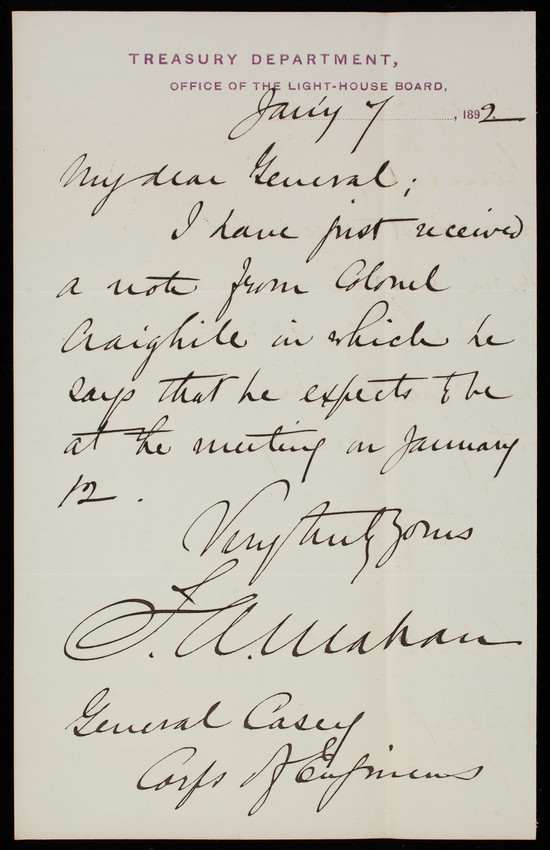 TREASURY DEPARTMENT,
OFFICE OF THE LIGHT-HOUSE BOARD,
Jan'y 7, 1892
My dear General;
I have just received
a note from Colonel
Craighill in which he
says that he expects to be
at the meeting on January
12.
Very truly yours
F. A. Mahan
General Casey
Corps of Engineers